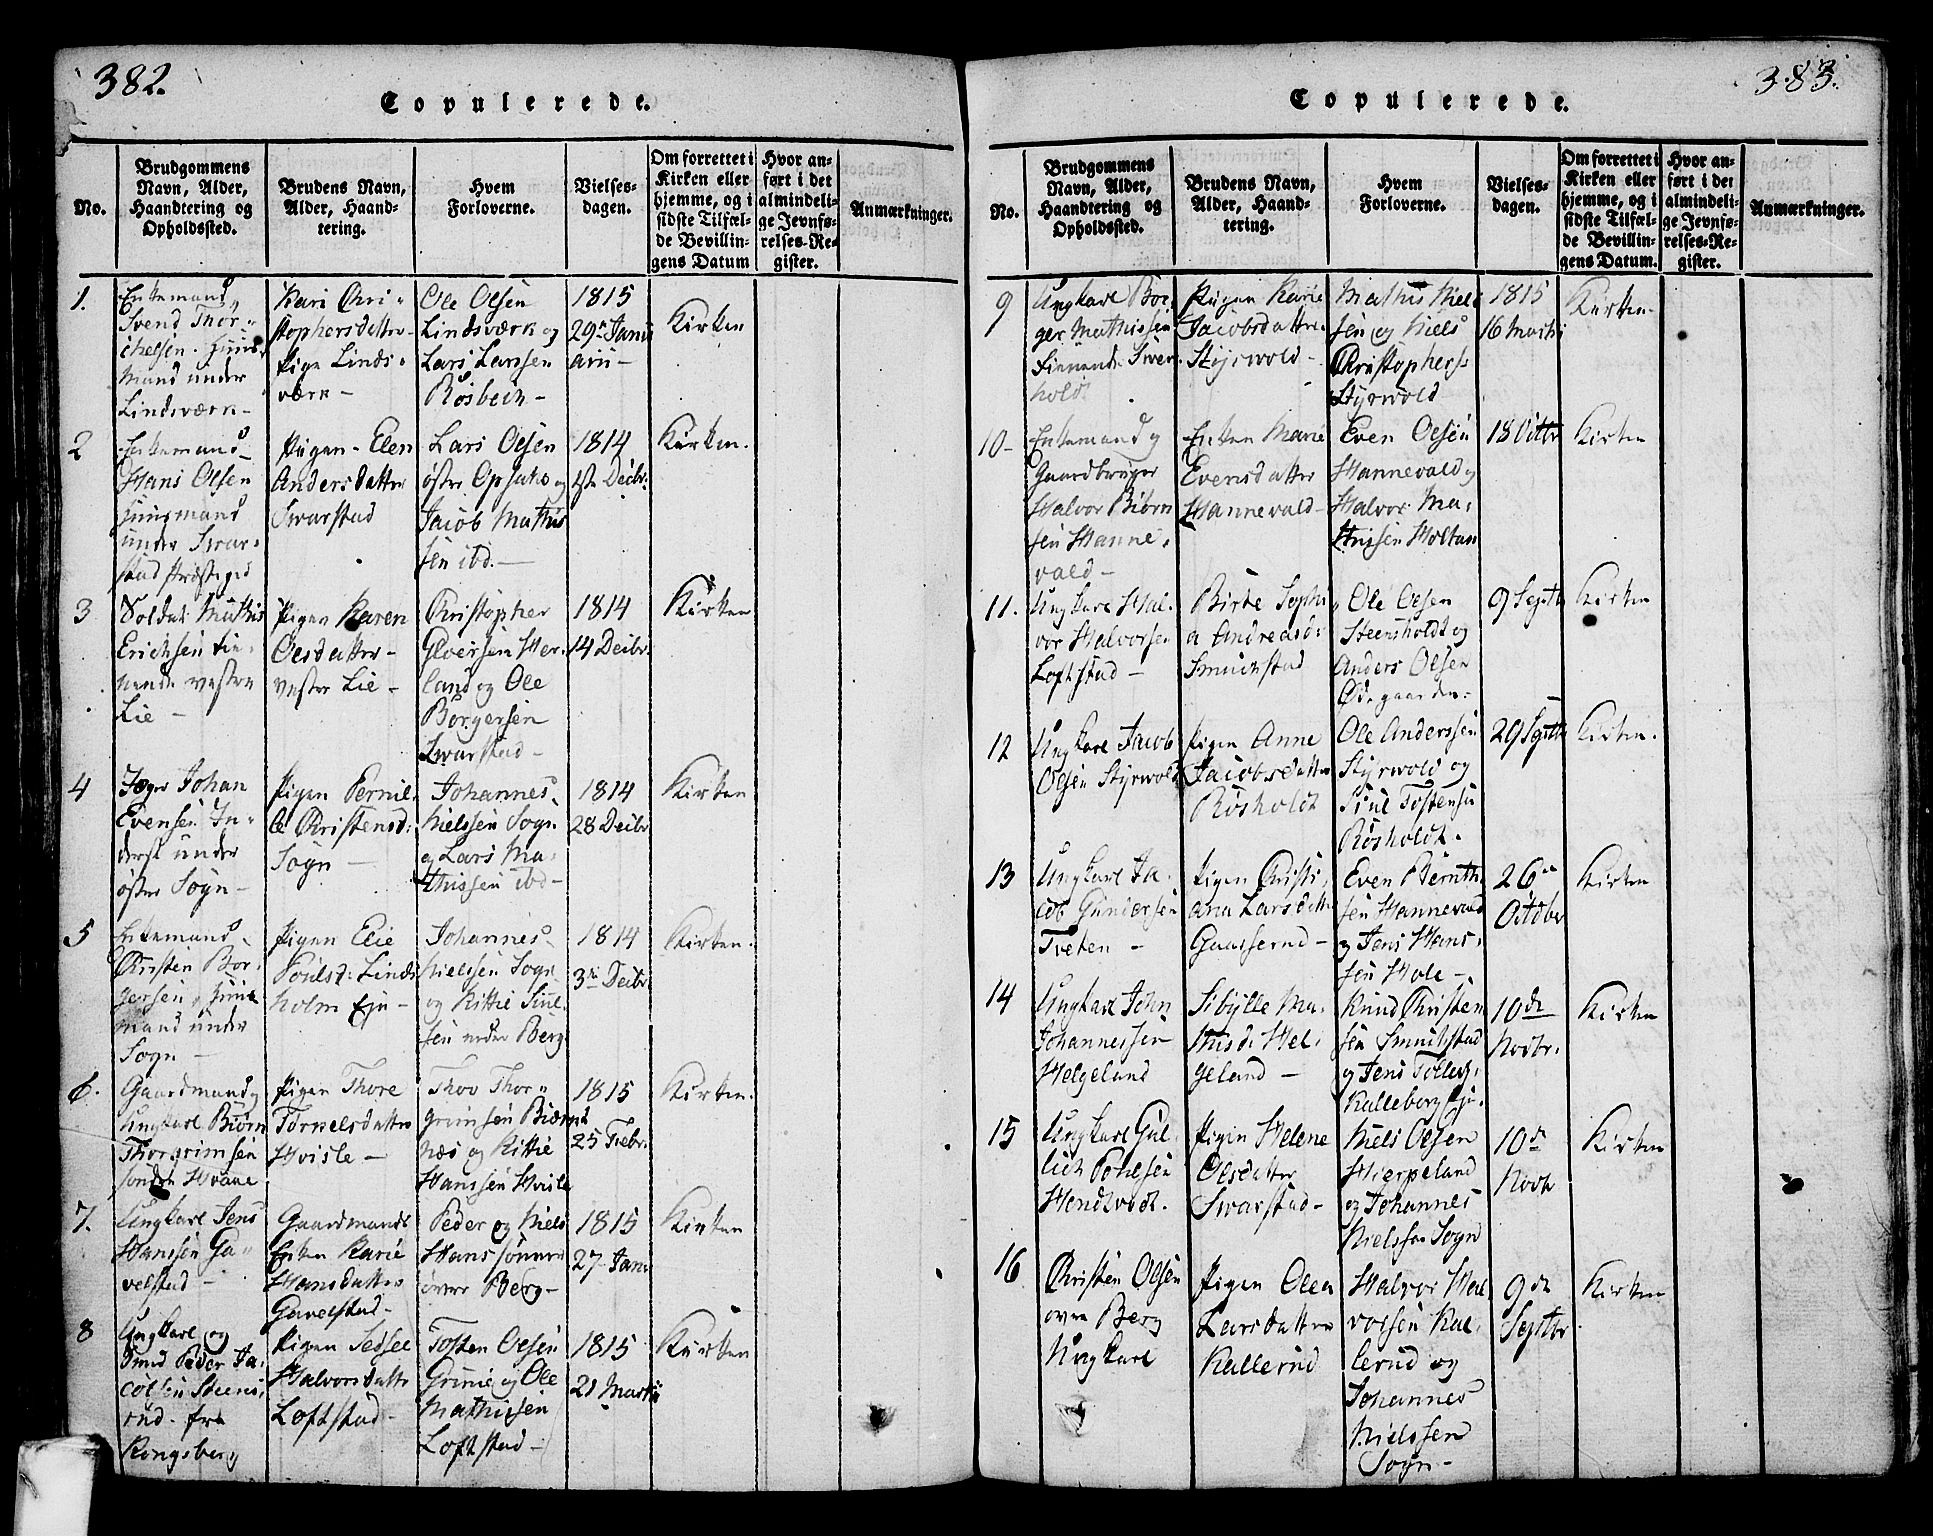 382.
Copulerede.
No.
Brudgommens
Navn, Alder,
Haandtering og
Opholdssted.
Brudens Navn,
Alder, Haand-
tering.
Hvem
Forloverne.
Vielses-
dagen.
Om forrettet i
Kirken eller
hjemme, og i
sidste Tilfæl-
de Bevillin-
gens Datum
Hvor an-
ført i det
almindeli-
ge Jevnfø-
relses-Re-
gister.
Anmærkninger.
1.
Enkemand
Svend Thor
ichelsen. Huus
mand under
Lindsværk-
Kari Chri-
stophersdatter-
Pige Linds-
værk-
Ole Olsen
Lindsværk og
Lars Larsen
Rosbech-
1815
29de Janu
arii-
Kirken
2
Enkemand
Hans Olsen
huusmand
under Svar-
stad Præstegrd
Pigen Elen
Andersdatter
Svarstad
Lars Olsen
østre Opsahs og
Jacob Mathis
sen ibd.-
1814
Decbr.
Kirken.
3
Soldat Mathis
Erichsen tie-
nende vestre
Lie-
Pigen Karen
Olsdatter-
vestre Lie-
Christopher
Gloersen Her-
land og Ole
Borgersen
Svarstad-
1814
14 Decbr.
Kirken
4
Johan
Evensen In-
derst under
østre Sogn-
Pigen Pernil-
le Christensd:
Sogn-
Johannes
Nielssen Sogn
og Lars Ma-
thissen ibd-
1814
28 Decbr
Kirken
5
Enkemand
Christen Bor-
gersen, Huus
mand under
Sogn-
Pigen Elie
Poulsd: Linds
holm Eje-
Johannes
Nielssen Sogn
og Kittil
sen neder Berg
1814
3die Decbr
Kirken.
6.
Gaardmand og
Ungkarl Biørn
Thorgrimsen
søndre Hvaale
Pigen Thore
Torgelsdatter
Hvisle-
Thov Thor-
grimsen Biørnd
næs og Kittil
Hanssen Hvisle
1815
25 Febr.
Kirken.
7.
Ungkarl Jens
Hanssen Ga-
velstad-
Gaardmands
Enken Karie
Hansdatter
Gavelstad-
Peder og Niels
Hanssønner
øvre Berg-
1815
27 Janr
Kirken
8
Ungkarl og
Smed Peder Ja-
cobsen Steens-
rud- fra
Kongsberg
Pigen Sedsel
Halvorsdattr
Loftstad-
Tosten Olsen
Grinie og Ole
Mathissen
Loftstad-
1815
21 Martii
Kirken
383.
Copulerede.
No.
Brudgommens
Navn, Alder,
Haandtering og
Opholdssted.
Brudens Navn,
Alder, Haand-
tering.
Hvem
Forloverne.
Vielses-
dagen.
Om forrettet i
Kirken eller
hjemme, og i
sidste Tilfæl-
de Bevillin-
gens Datum.
Hvor an-
ført i det
almindeli-
ge Jevnfø-
relses-Re-
gister.
Anmærkninger.
9
Ungkarl Bor-
ger Mathissen
Tienende Siver
hold
Pigen Karie
Jacobsdatter
Styrvold-
Mathis Niels
sen og Niels
Christophers.
Styrvold
1815
16 Martii
Kirken.
10-
Enkemand og
Gaardbruger
Halvor Biørn
sen Hanne-
vald-
Enken Marie
Evensdatter
Hannevald-
Even Olsen
Hannevald og
Halvor Ma-
thissen Holtan
18 Octbr
Kirken
11.
Ungkarl Hal-
vor Halvorsen
Loftstad-
Birte Sophi
a Andreasd:
Smuchstad
Ole Olsen
Steensholdt og
Anders Olsen
Ødegaarden:
9 Septbr
Kirken
12
Ungkarl Jacob
Olsen Styrvold
Pigen Anne
Jacobsdatter
Rosholdt
Ole Anderssen
Styrvold og
Tostensen
Rosholdt.
29 Septbr
Kirken.
13
Ungkarl Ja-
cob Gundersen
Tveten-
Pigen Christi-
ana Larsdatter
Gaasserud-
Even Bernth-
sen Hannevald
og Jens Hans-
sen Hole-
26de
October
Kirken
14
Ungkarl John
Johannessen
Helgeland
Sibylle Ma-
thisd: Hel-
geland-
Knud Christen
sen Smuchstad
og Jens Tollefs.
Kalleberg Eje.
10de
Novbr.
Kirken
15
Ungkarl Gul-
lich Povelsen
Hendtvedt.
Pigen Helene
Olsdatter
Svarstad-
Niels Olsen
Hierpeland
og Johannes
Nielssen Sogn
10de
Novbr
Kirken
16
Christen Olsen
øvre Berg
Ungkarl
Pigen Olea
Larsdatter
Kallerud
Halvor Hal
vorsen Kal-
lerud og
Johannes
Nielssen
Sogn-
9de
Septbr
Kirken